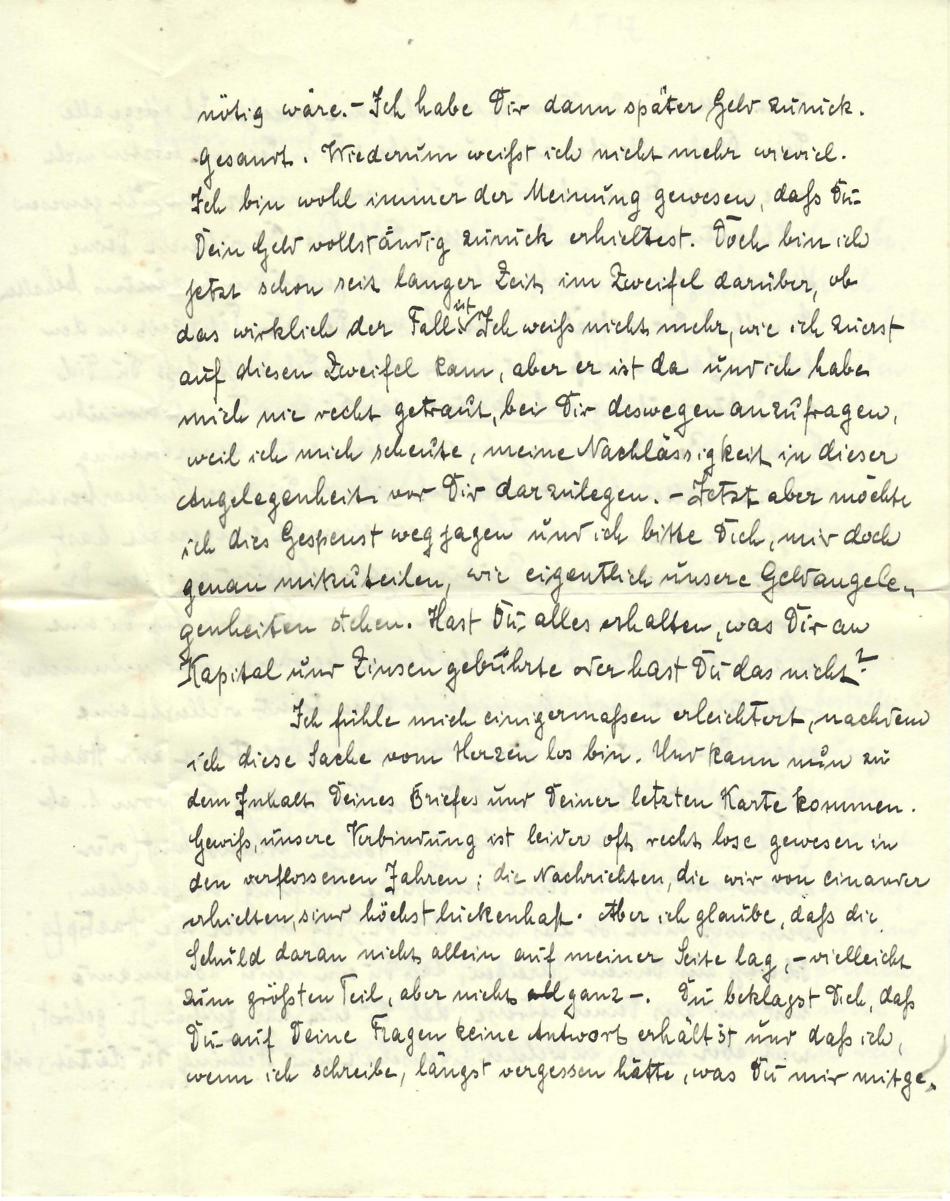 nötig wäre. – Ich habe Dir dann später Geld zurück-
gesandt. Wiederum weißt ich nicht mehr wieviel.
Ich bin wohl immer der Meinung gewesen, daß Du
Dein Geld vollständig zurück erhieltest. Doch bin ich
jetzt schon seit langer Zeit im Zweifel darüber, ob
das wirklich der Fall ist. Ich weiß nicht mehr, wie ich zuerst
auf diesen Zweifel kam, aber er ist da und ich habe
mich nie recht getraut, bei Dir deswegen anzufragen,
weil ich mich scheute, meine Nachlässigkeit in dieser
Angelegenheit vor Dir darzulegen. – Jetzt aber möchte
ich dies Gespenst wegjagen und ich bitte Dich, mir doch
genau mitzuteilen, wie eigentlich unsere Geldangele-
genheiten stehen. Hast Du alles erhalten, was Dir an
Kapital und Zinsen gebührte oder hast Du das nicht?
Ich fühle mich einigermaßen erleichtert, nachdem
ich diese Sache vom Herzen los bin. Und kann nun zu
dem Inhalt Deines Briefes und Deiner letzten Karte kommen.
Gewiß, unsere Verbindung ist leider oft recht lose gewesen in
den verflossenen Jahren; die Nachrichten, die wir von einander
erhielten, sind höchst lückenhaft. Aber ich glaube, daß die
Schuld daran nicht allein auf meiner Seite lag, – vielleicht
zum größten Teil, aber nicht ganz –. Du beklagst Dich, daß
Du auf Deine Fragen keine Antwort erhältst und daß ich,
wenn ich schreibe, längst vergessen hätte, was Du mir mitge-